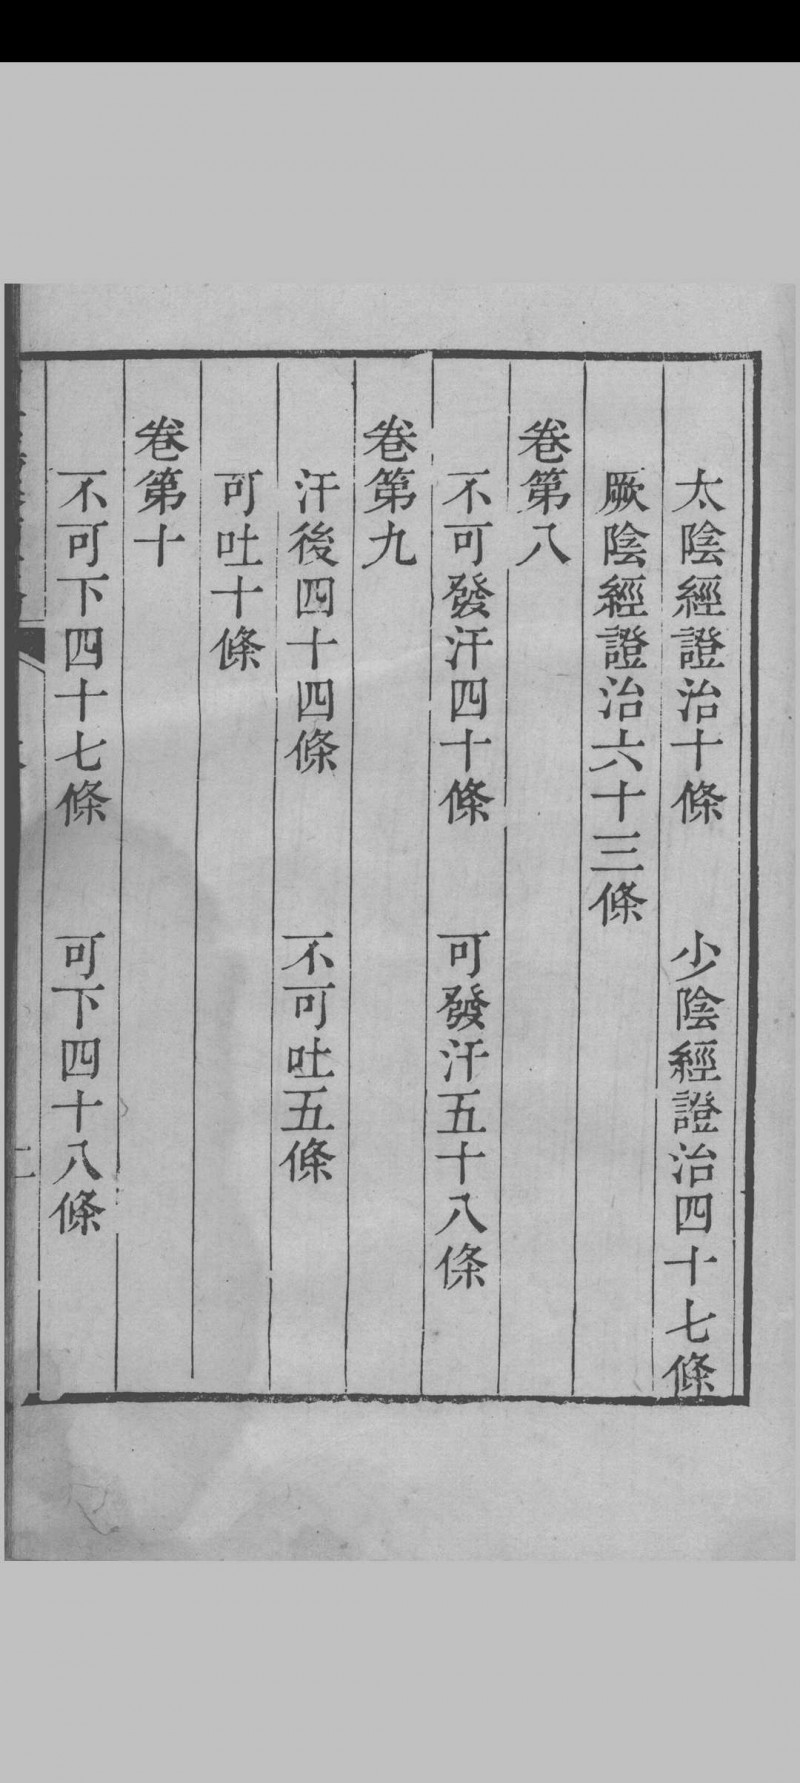 太陰經證治十條　少陰經證治四十七條
厥陰經證治六十三條
卷第八
不可發汗四十條　可發汗五十八條
卷第九
汗後四十四條　不可吐五條
可吐十條
卷第十
不可下四十七條　可下四十八條
二